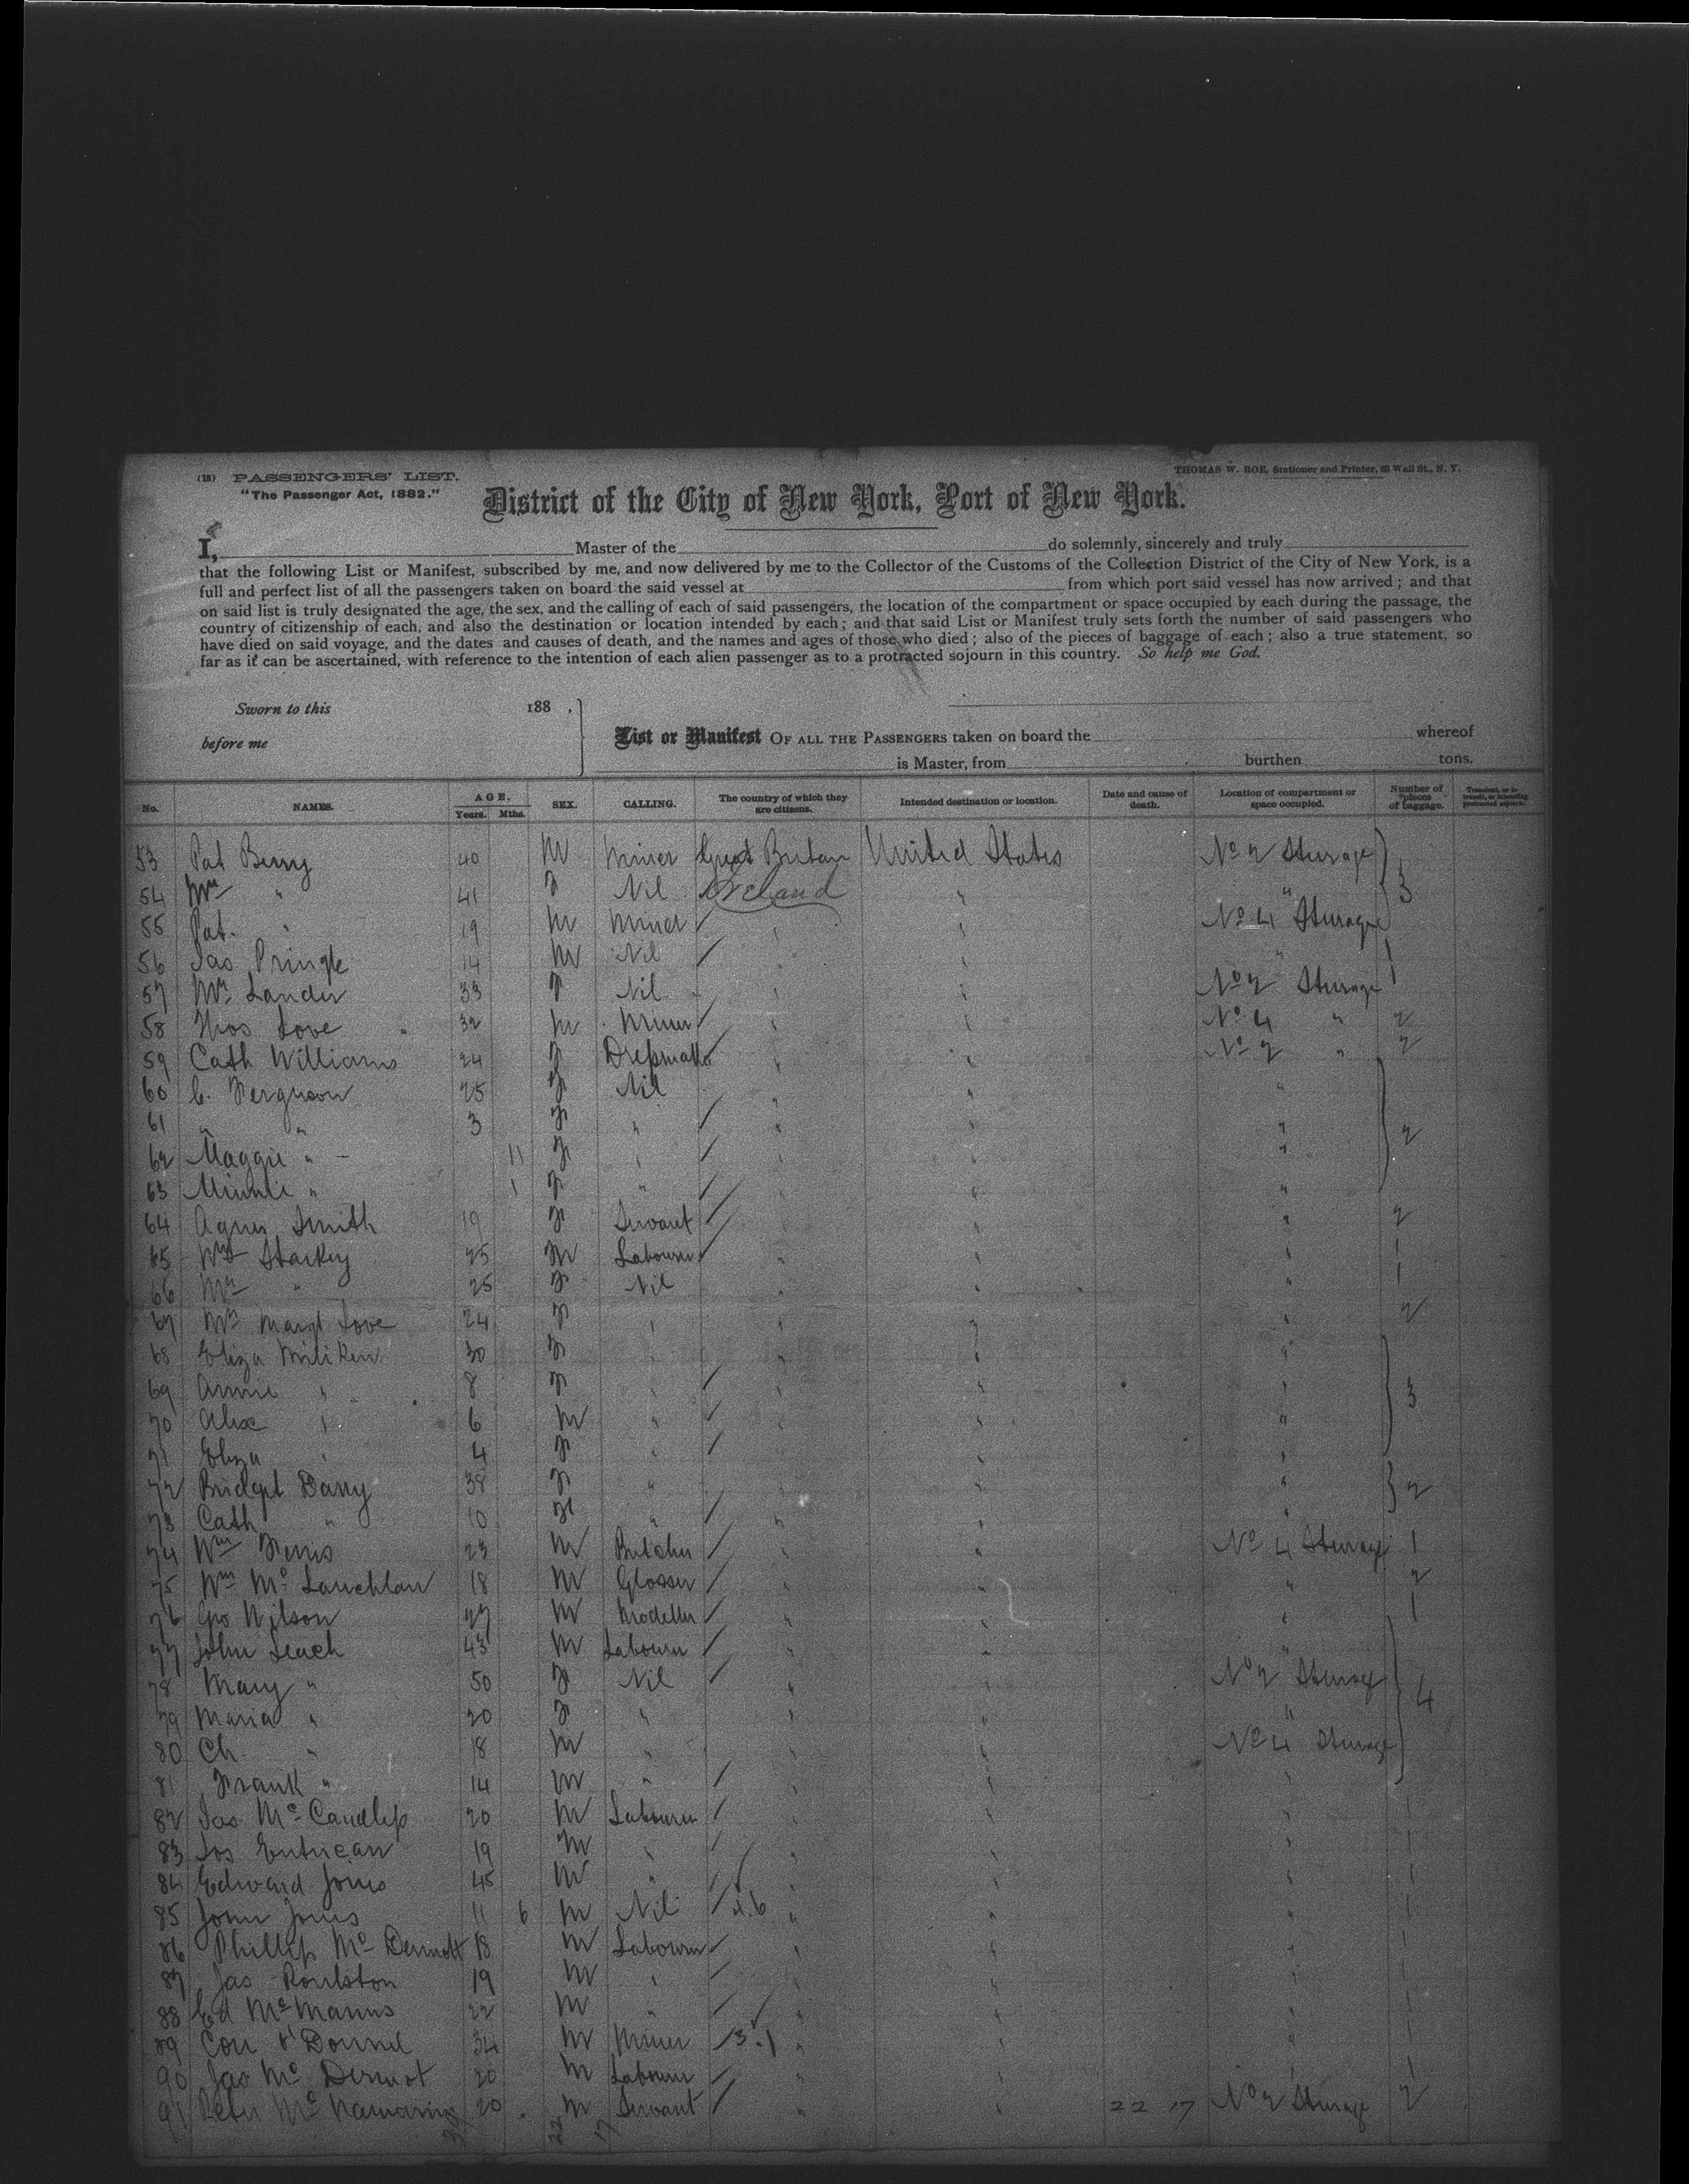 (13) PASSENGERS' LIST.
THOMAS W. ROE, Stationer and Printer, 63 Wall St., N. Y.
"The Passenger Act, 1882."
District of the City of New York, Port of New York.
I, Master of the do solemnly, sincerely and truly
that the following List or Manifest, subscribed by me, and now delivered by me to the Collector of the Customs of the Collection District of the City of New York, is a
full and perfect list of all the passengers taken on board the said vessel at from which port said vessel has now arrived; and that
on said list is truly designated the age, the sex, and the calling of each of said passengers, the location of the compartment or space occupied by each during the passage, the
country of citizenship of each, and also the destination or location intended by each; and that said List or Manifest truly sets forth the number of said passengers who
have died on said voyage, and the dates and causes of death, and the names and ages of those who died; also of the pieces of baggage of each; also a true statement, so
far as it can be ascertained, with reference to the intention of each alien passenger as to a protracted sojourn in this country. So help me God.
Sworn to this 188 .
before me
List or Manifest OF ALL THE PASSENGERS taken on board the whereof
is Master, from burthen tons.
No. NAMES. AGE. Years. Mths. SEX. CALLING. The country of which they are citizens. Intended destination or location. Date and cause of death. Location of compartment or space occupied. Number of pieces of baggage. Transient, or in transit, or intending protracted sojourn.
53 Pat Berry 40 M Miner Great Britain United States No 2 Sturage
54 Mrs " 41 F Nil Ireland " " 3
55 Pat. " 19 M Miner / " " No 4 Sturage
56 Jas Pringle 14 M Nil / " " " 1
57 Mrs Lander 33 F Nil " No 2 Sturage 1
58 Thos Love 32 M Miner / " No 4 " 2
59 Cath Williams 24 F Dressmak / " " No 2 " 2
60 C. Ferguson 25 F Nil " " "
61 " " 3 F " / " " " 2
62 Maggie " 11 F " / " " "
63 Minnie " 1 F " / " " "
64 Agnes Smith 19 F Servant / " " " 2
65 Wm Starkey 25 M Labourer / " " " 1
66 Mrs " 25 F Nil " " " 1
67 Mrs Margt Love 24 F " " " " 2
68 Eliza Miliken 30 F " " " "
69 Annie " 8 F " / " " " 3
70 Alex " 6 M " / " " "
71 Eliza " 4 F " / " " "
72 Bridget Darry 38 F " " " 2
73 Cath " 10 F " / " " "
74 Wm Ferris 23 M Butcher / " " No 4 Sturage 1
75 Wm Mc Lauchlan 18 M Glosser / " " " 2
76 Geo Wilson 27 M Modeller / " " " 1
77 John Leach 43 M Labourer / " " "
78 Mary " 50 F Nil / " " No 2 Sturage 4
79 Maria " 20 F " " " "
80 Ch. " 18 M " " " No 4 Sturage
81 Frank " 14 M " / " " "
82 Jas Mc Candless 20 M Labourer / " " " 1
83 Jos Entrican 19 M " / " " " 1
84 Edward Jones 45 M " / " " " 1
85 John Jones 11 6 M Nil / " " " 1
86 Phillip Mc Dermott 18 M Labourer / " " " 1
87 Jas Roulston 19 M " / " " " 1
88 Ed McManus 22 M " / " " " 1
89 Con O'Donnel 34 M Miner / " " " 1
90 Jas Mc Dermot 20 M Labourer / " " " 1
91 Peter Mc 20 M Servant / " " 22 17 No 2 Sturage 2
22 17